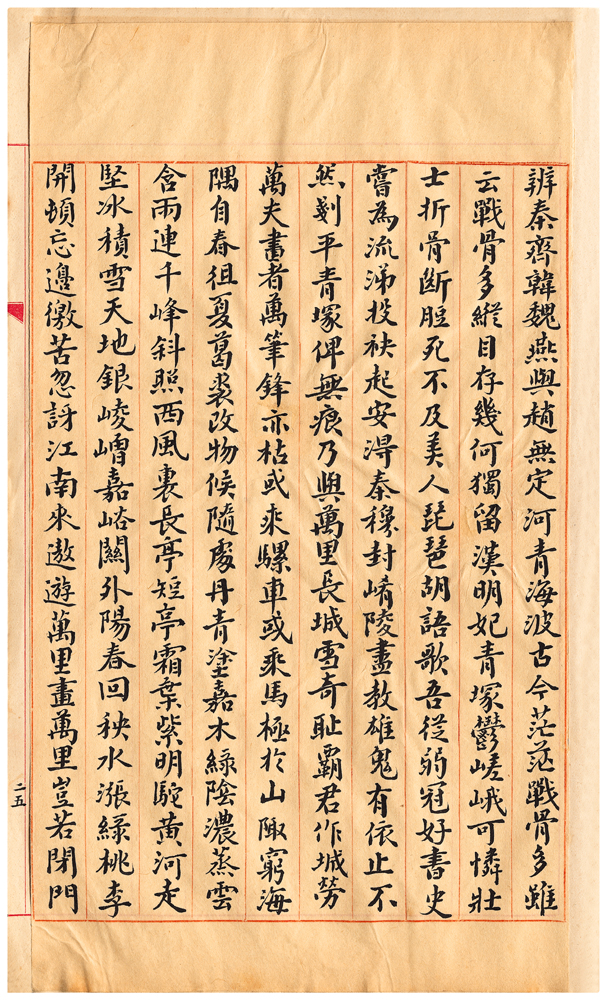 辨秦齊韓魏燕與趙無定河青海波古今茫茫戰骨多雖
云戰骨多縱目存幾何獨留漢明妃青塚鬱嵯峨可憐壯
士折骨斷脰死不及美人琵琶胡語歌吾從弱冠好書史
嘗為流涕投袂起安得秦穆封崤陵盡教雄鬼有依止不
然剗平青塚俾無痕乃與萬里長城雪奇恥霸君作城勞
萬夫畫者萬筆鋒亦枯或乘騾車或乘馬極於山陬窮海
隅自春徂夏葛裘改物候隨處丹青塗嘉木綠陰濃蒸雲
含雨連千峰斜照西風裏長亭短亭霜葉紫明駝黃河走
堅冰積雪天地銀崚嶒嘉峪關外陽春回秧水漲綠桃李
開頓忘邊徼苦忽訝江南來遨遊萬里畫萬里豈若閉門
二五